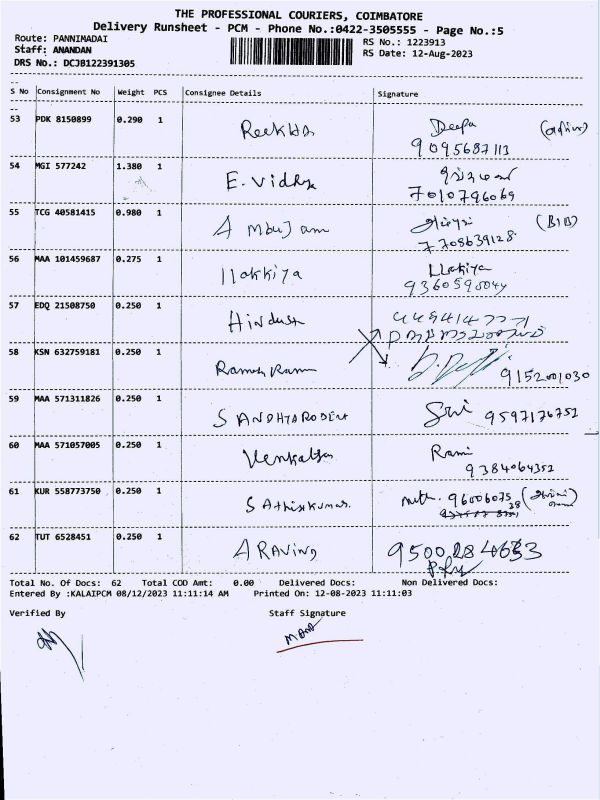 THE PROFESSIONAL COURIERS, COIMBATORE
Delivery Runsheet - PCM - Phone No.:0422-3505555 - Page No.:5
Route: PANNIMADAI RS No.: 1223913
Staff: ANANDAN RS Date: 12-Aug-2023
DRS No.: DCJB122391305
S No Consignment No Weight PCS Consignee Details Signature
53 PDK 8150899 0.290 1 Reekha Deepa
9095687113
54 MGI 577242 1.380 1 E. Vidhya
7010796069
55 TCG 40581415 0.980 1 AmbuJam (B1B)
7708639128
56 MAA 101459687 0.275 1 Ilakkiya Ilakiya
9360595044
57 EDQ 21508750 0.250 1 Hindust
58 KSN 632759181 0.250 1 Ramesh Ram
9152001030
59 MAA 571311826 0.250 1 Sri 9597176752
60 MAA 571057005 0.250 1 Venkat Rami
9384064352
61 KUR 558773750 0.250 1 Sathiskumar 96006075
28
62 TUT 6528451 0.250 1 ARAVIND
Total No. Of Docs: 62 Total COD Amt: 0.00 Delivered Docs: Non Delivered Docs:
Entered By :KALAIPCM 08/12/2023 11:11:14 AM Printed On: 12-08-2023 11:11:03
Verified By Staff Signature